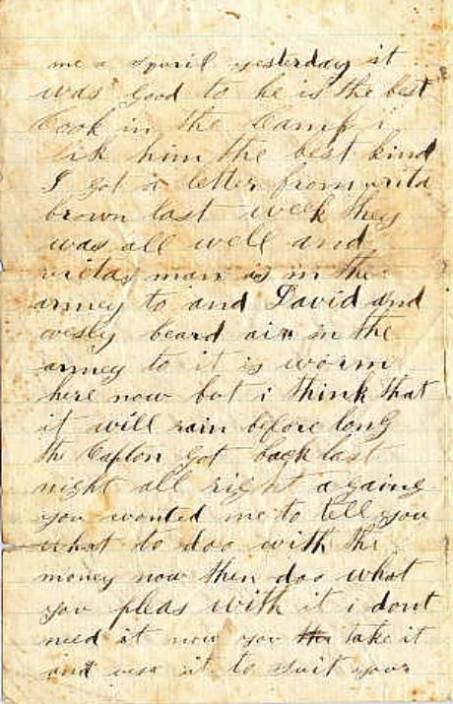 me a yesterday it
was good to he is the best
Cook in the Camp i
lik him the best kind
I got a letter from
brown last week they
was all well and
man is in the
armey to and David and
wesly beard air in the
armey to it is worm
here now but i think that
it will rain before long
the Capton got back last
night all right a gaine
you wonted me to tell you
what to doo with the
money now then doo what
you pleas with it i dont
need it now you take it
and use it to suit your